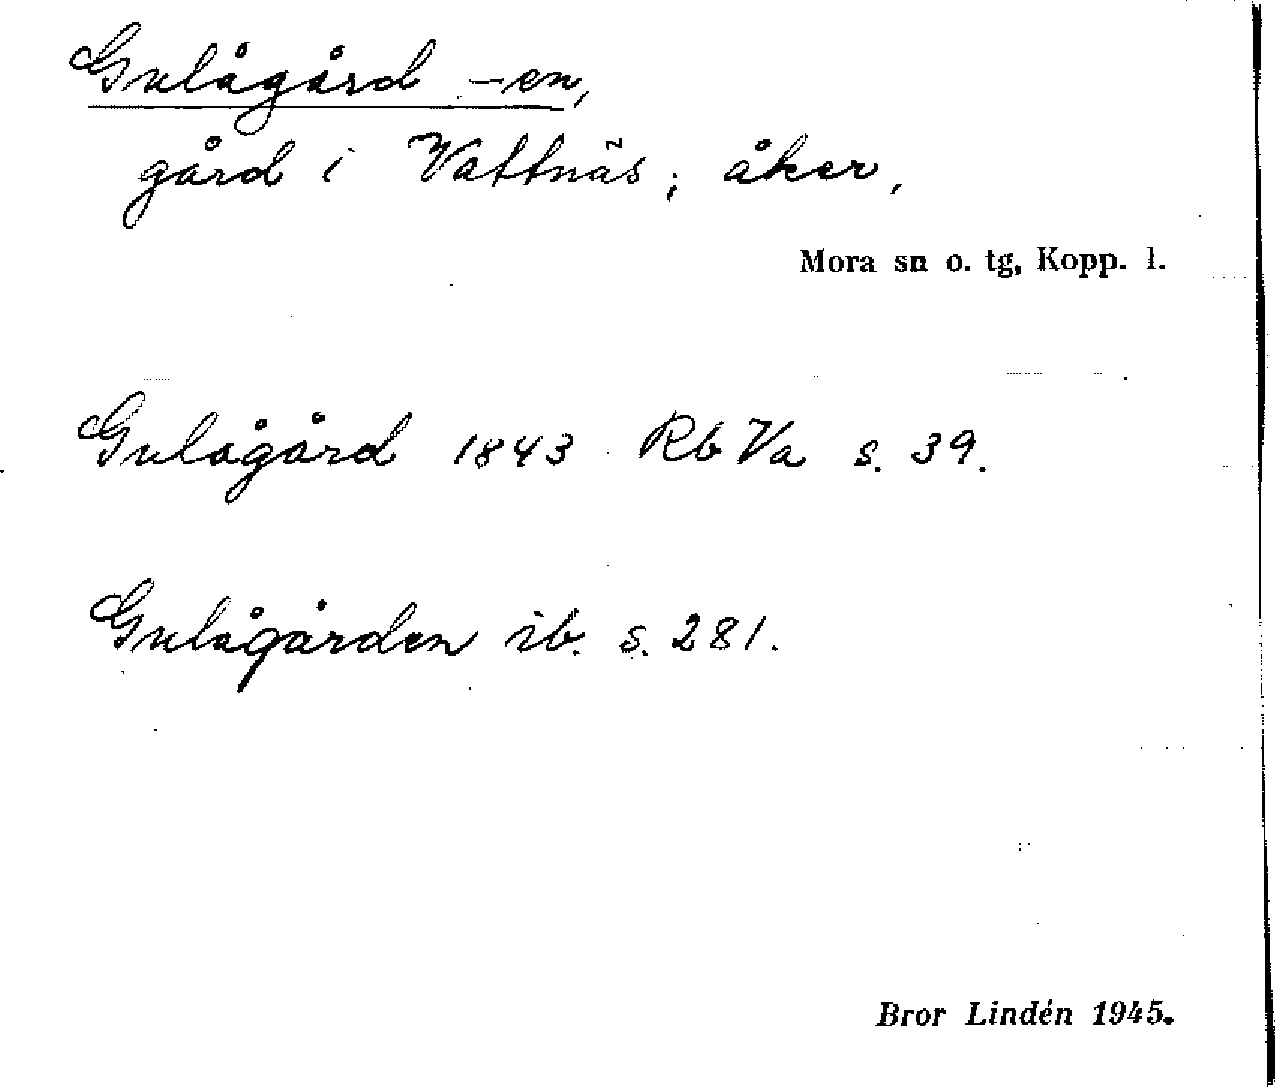 Gulågård -en,
gård i Vattnäs; åker,
Mora sn o. tg, Kopp. l.
Gulågård 1843 Rb Va s. 39.
Gulågården ib. s. 281.
Bror Lindén 1945.